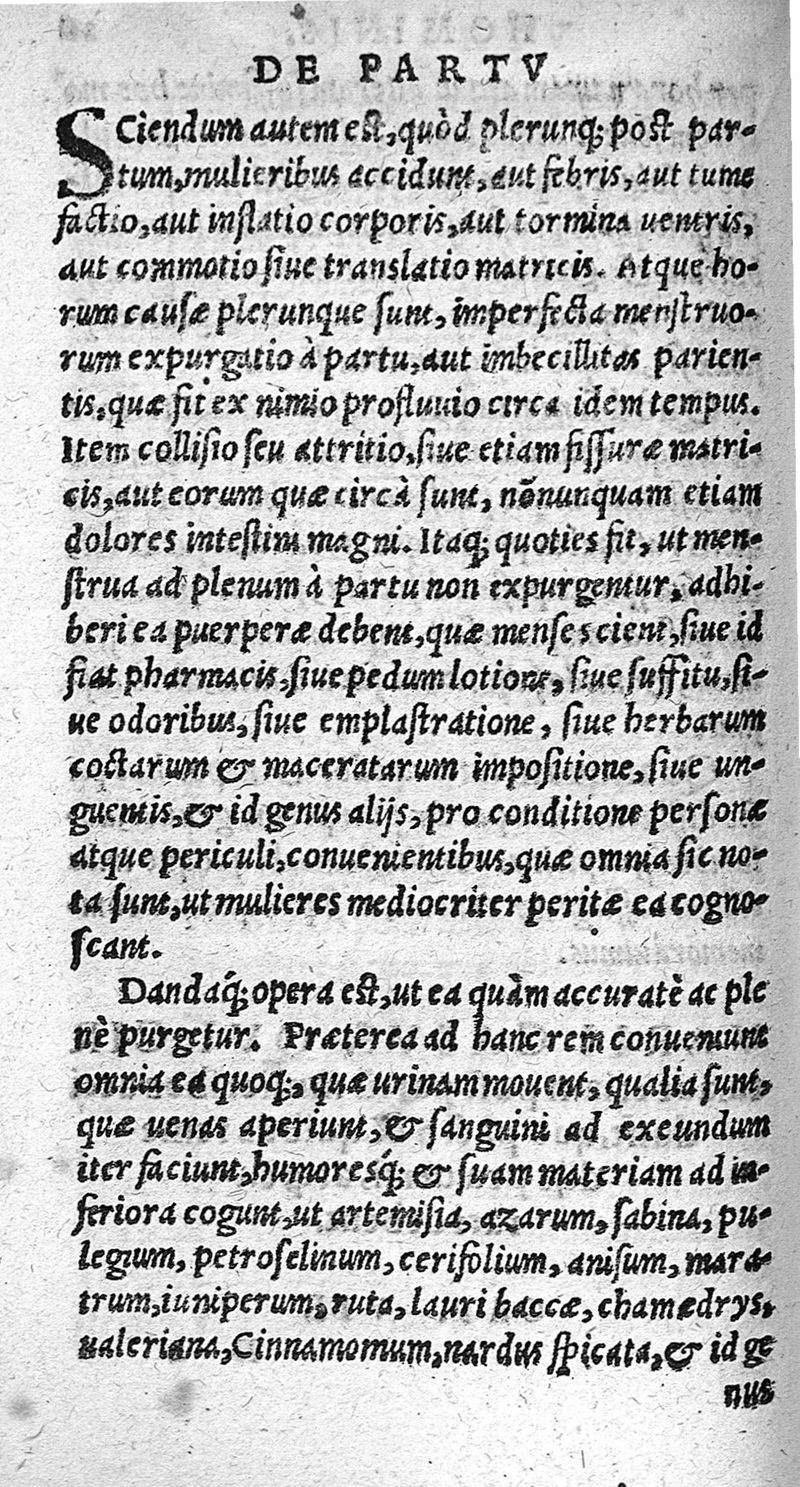 DE PARTV
SCiendum autem est, quòd plerunq; post par-
tum, mulieribus accidunt, aut febris, aut tume
factio, aut inflatio corporis, aut tormina uentris,
aut commotio siue translatio matricis. Atque ho-
rum causæ plerunque sunt, imperfecta menstruo-
rum expurgatio à partu, aut imbecillitas parien-
tis, quæ fit ex nimio profluuio circa idem tempus.
Item collisio seu attritio, siue etiam fissuræ matri-
cis, aut eorum quæ circà sunt, nōnunquam etiam
dolores intestini magni. Itaq; quoties fit, ut men-
strua ad plenum à partu non expurgentur, adhi-
beri ea puerperæ debent, quæ menses cient, siue id
fiat pharmacis, siue pedum lotione, siue suffitu, si-
ue odoribus, siue emplastratione, siue herbarum
coctarum & maceratarum impositione, siue un-
guentis, & id genus alijs, pro conditione personæ
atque periculi, conuenientibus, quæ omnia sic no-
ta sunt, ut mulieres mediocriter peritæ ea cogno-
scant.
Dandaq́; opera est, ut ea quàm accuratè ac ple
nè purgetur. Præterea ad hanc rem conueniunt
omnia ea quoq;, quæ urinam mouent, qualia sunt,
quæ uenas aperiunt, & sanguini ad exeundum
iter faciunt, humoresq́; & suam materiam ad in-
feriora cogunt, ut artemisia, azarum, sabina, pu-
legium, petroselinum, cerifolium, anisum, mara-
trum, iuniperum, ruta, lauri baccæ, chamædrys,
ualeriana, Cinnamomum, nardus spicata, & id ge
nus